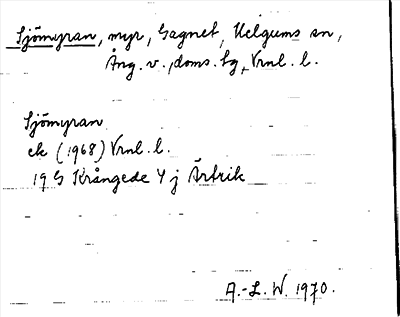 Sjömyran, myr, Gagnet, Helgums sn,
Ång. v., doms. tg, Vrnl. l.
Sjömyran
ek (1968) Vrnl. l.
19 G Krångede 4 j Ärtrik
A.-L. W. 1970.